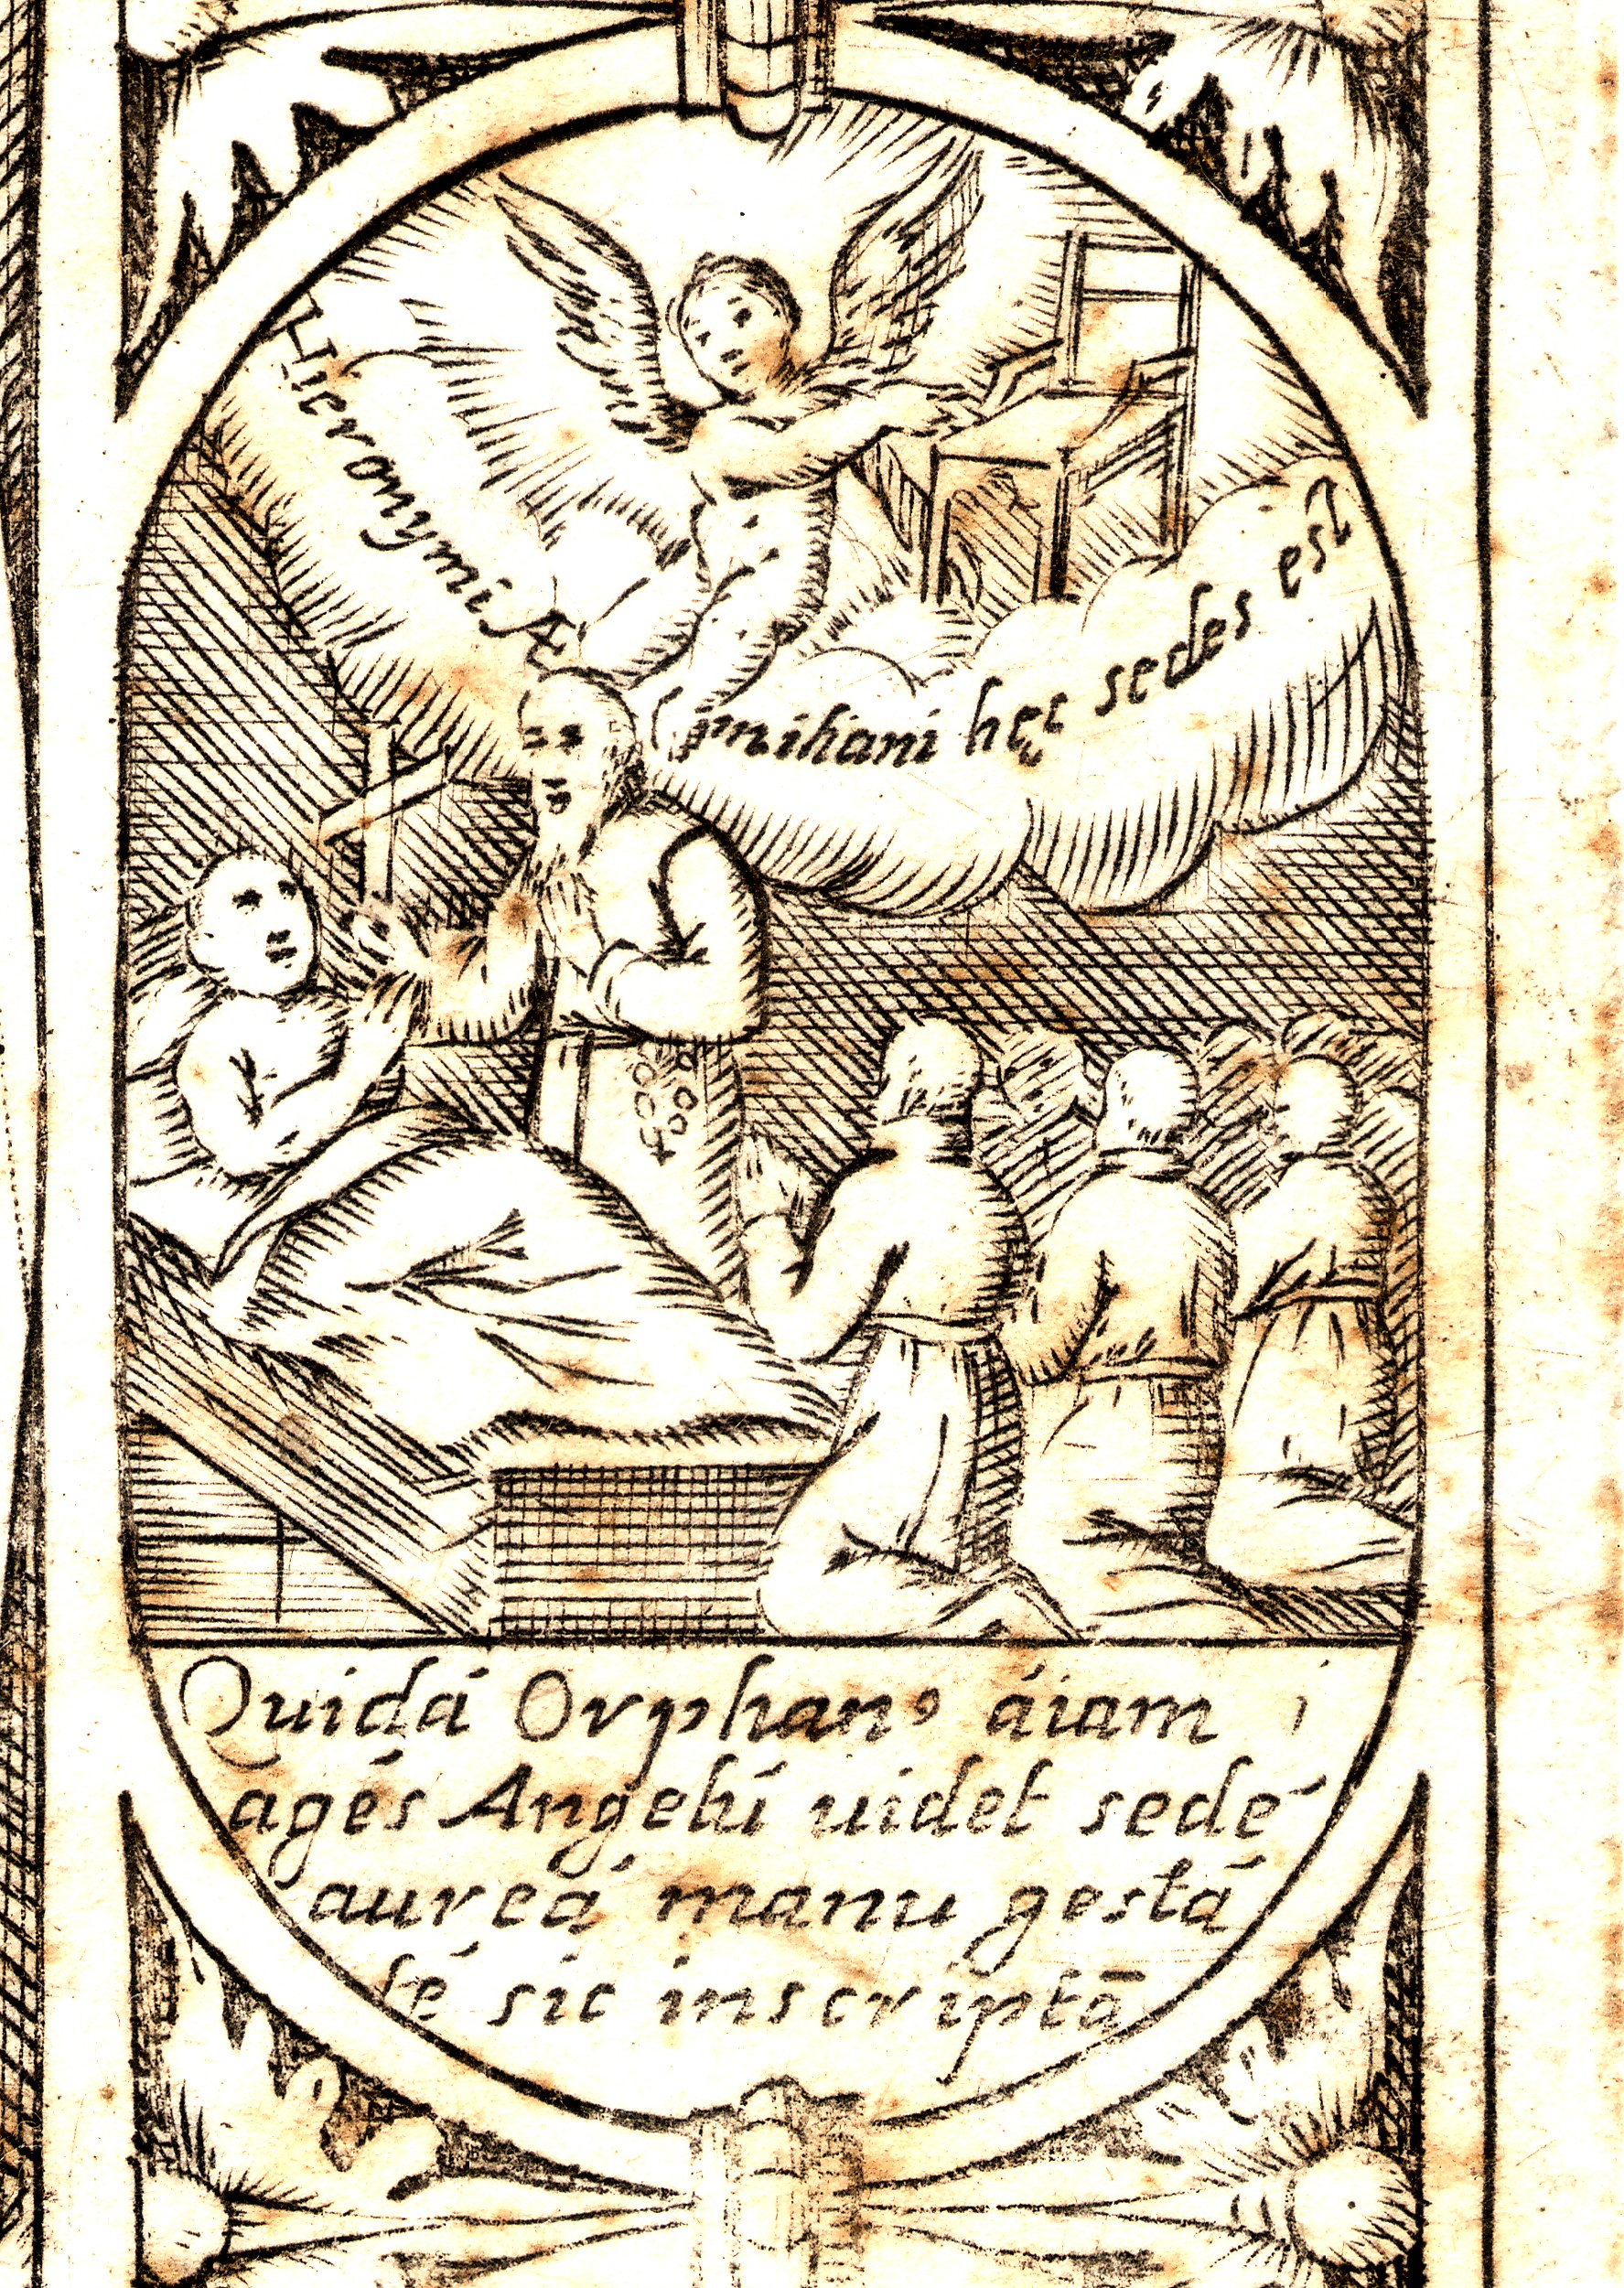 Hieronymi Æmiliani hęc sedes est
Quidá Orphanꝰ áiam i
agés Angelú uidet sedé
aureá manu gestá
té sic inscriptā